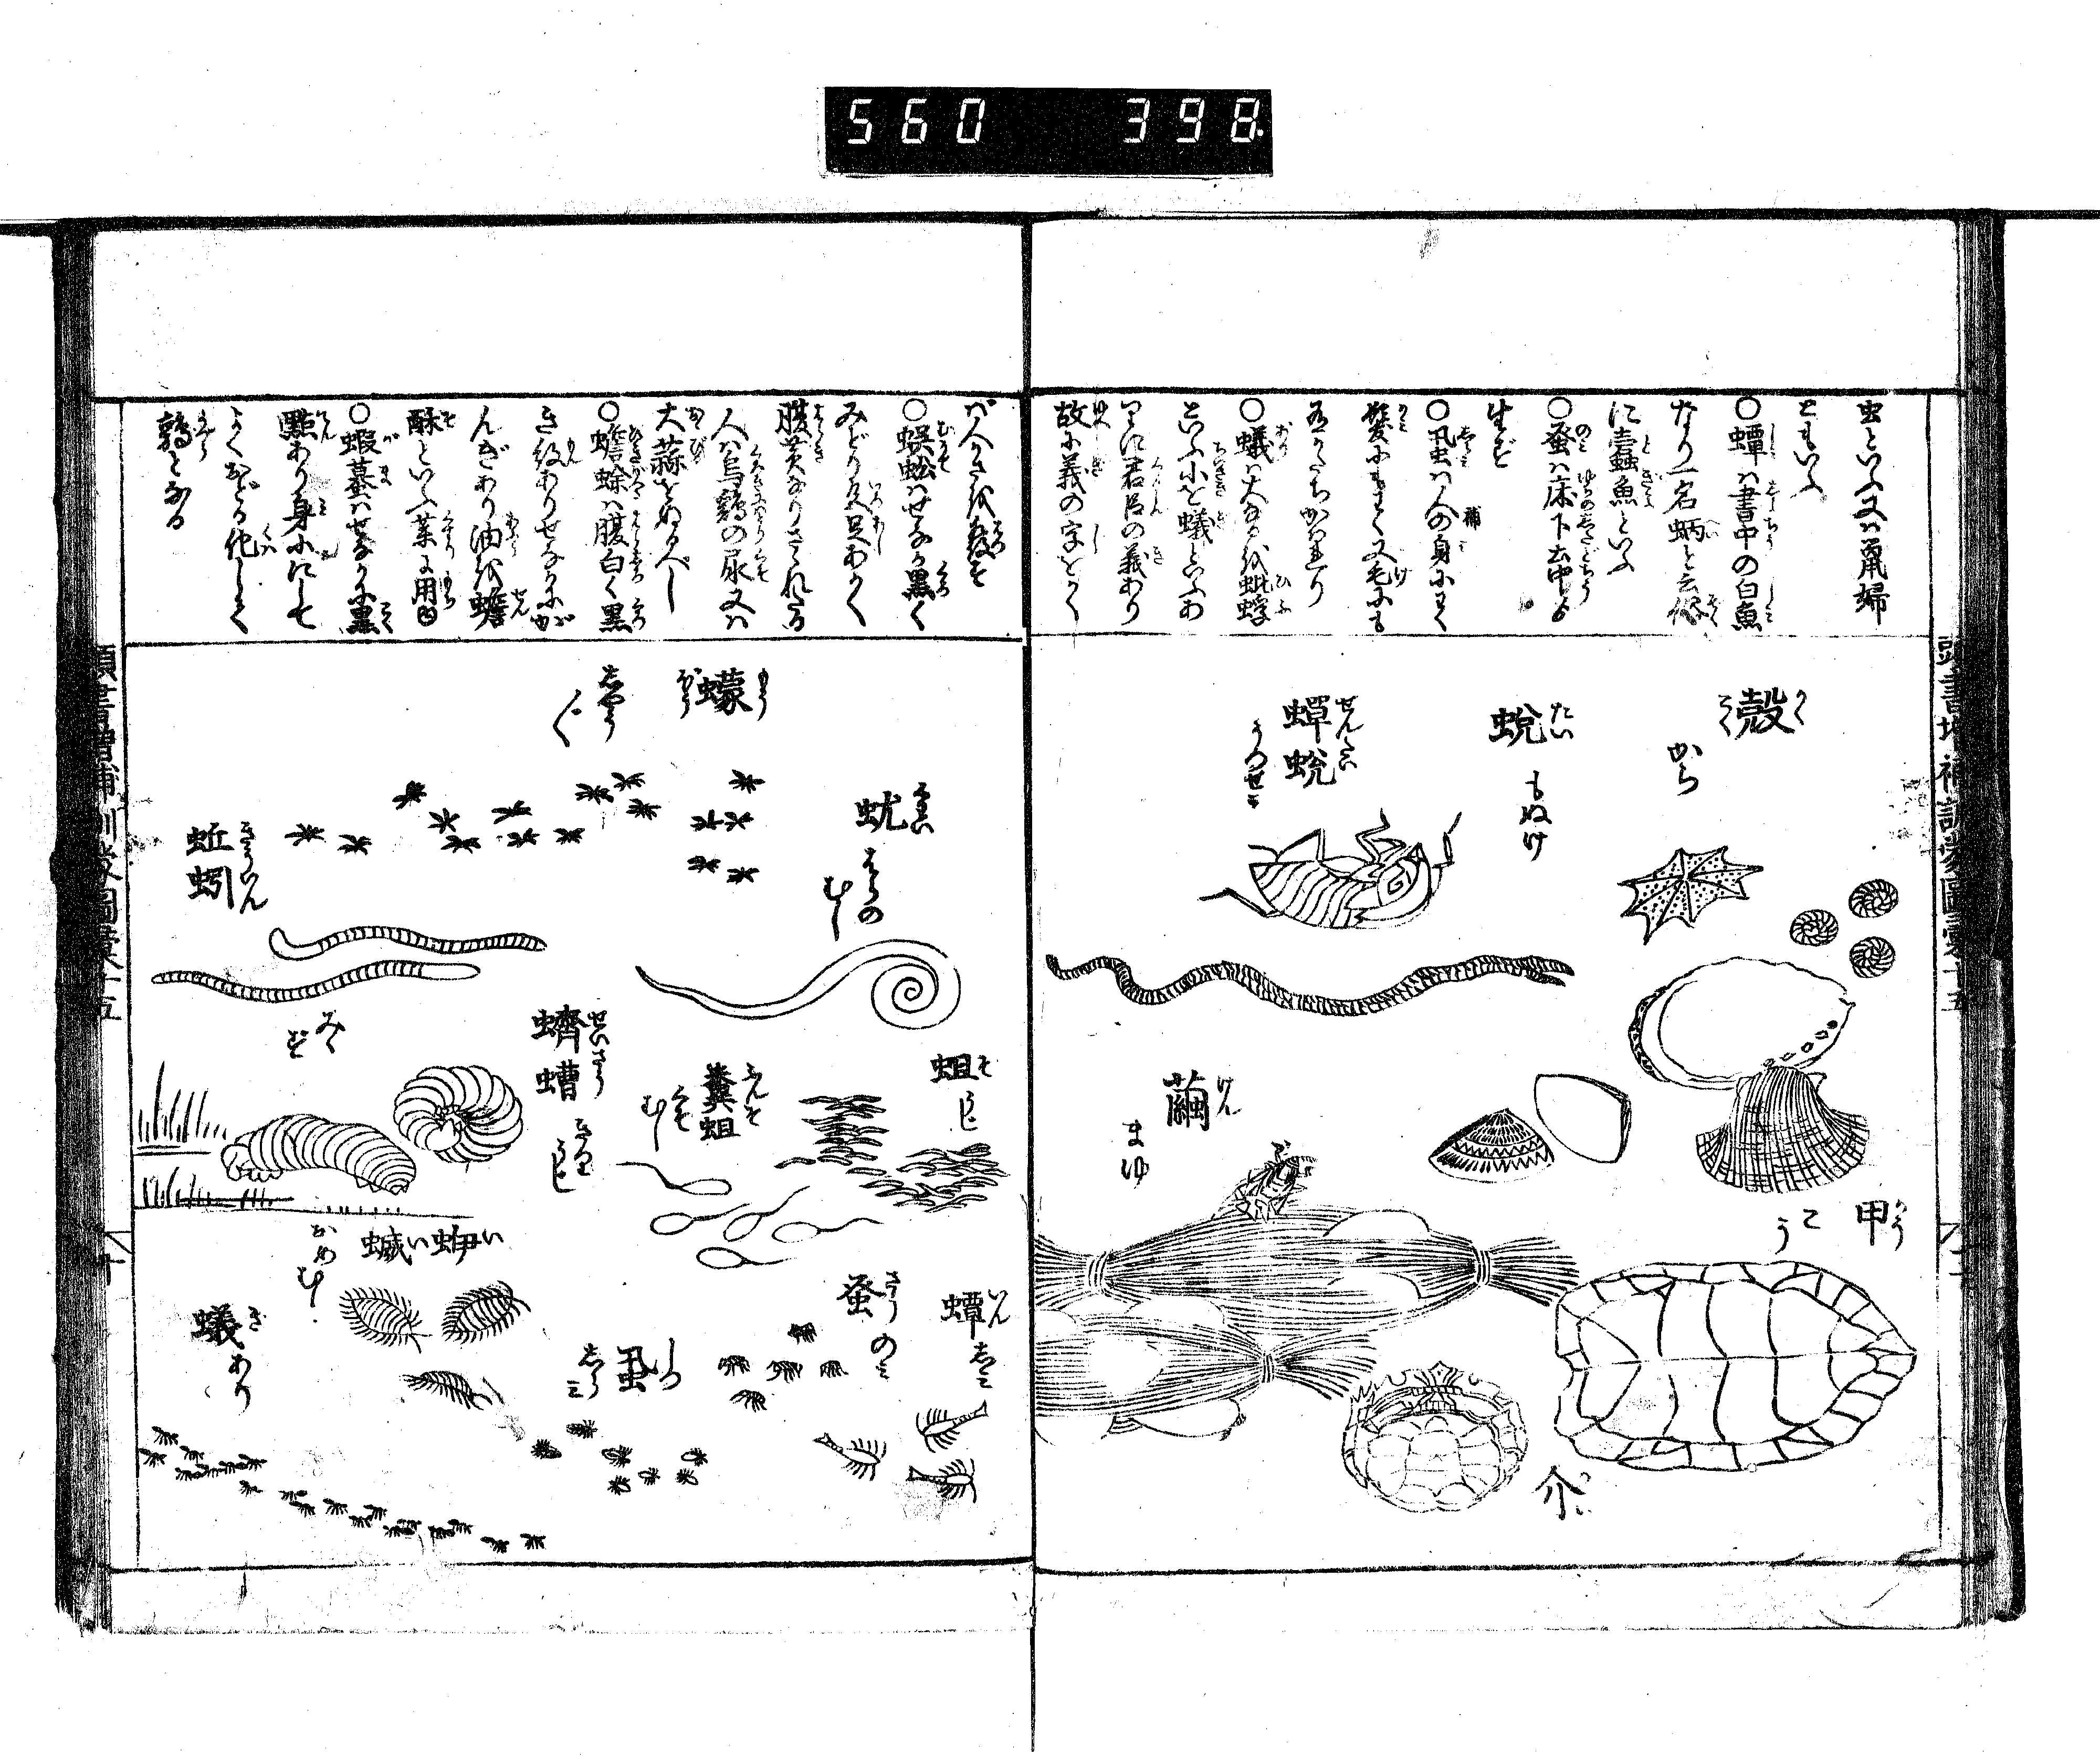 560 398
虫といふ又ハ鼠婦
ともいふ
○蟫ハ書中の白魚
なり一名蛃と云俗
に蠧魚といふ
○蚤ハ床下土中より
生ず
○虱ハ人の身にわく
髪にもわく又毛にも
○蟻ハ大なるを蚍蜉
といふ小を蟻といふあ
りに君臣の義あり
故に義の字をかく
殻
かく
から
蛻
たい
もぬけ
蟬蛻
せんたい
うつせみ
繭
けん
まゆ
甲
かう
こう
介
かい
頭書増補訓蒙圖彙十五
○蜈蚣ハせなか黒く
みどり足あかく
腹黄なりさゝれたる
人ハ烏鶏の尿又ハ
大蒜をぬるべし
○蟾蜍ハ腹白く黒
き紋ありせなかにが
んぎあり油を蟾
酥といふ薬に用ゆ
○蝦蟇ハせなかに黒
點あり身小にして
よくおどる化して
鶉となる
蠓
もう
蚘
くわい
はらのむし
蚯蚓
きういん
みゝず
蠐螬
せいさう
きりうじ
糞蛆
ふんそ
くそむし
蛆
そ
うじ
蛜蝛
いい
おめむし
蚤
さう
のみ
蟫
いん
しみ
虱
しつ
しらみ
蟻
ぎ
あり
頭書増補訓蒙圖彙十五